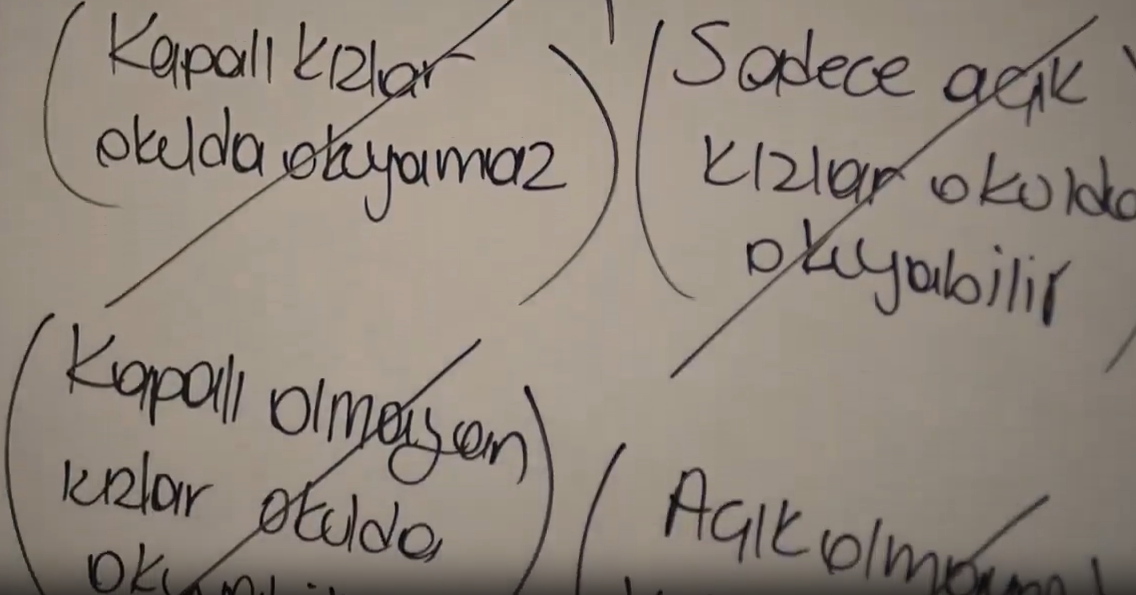 Kapalı kızlar
okulda okuyamaz
Sadece açık
kızlar okulda
okuyabilir
Kapalı olmayan
kızlar okulda
Açık